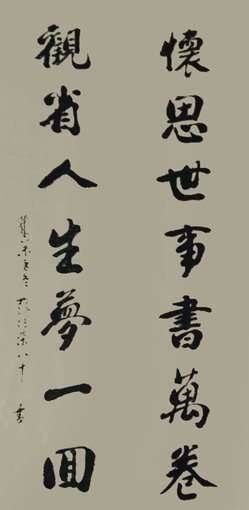 懷思世事書萬卷
觀省人生夢一回